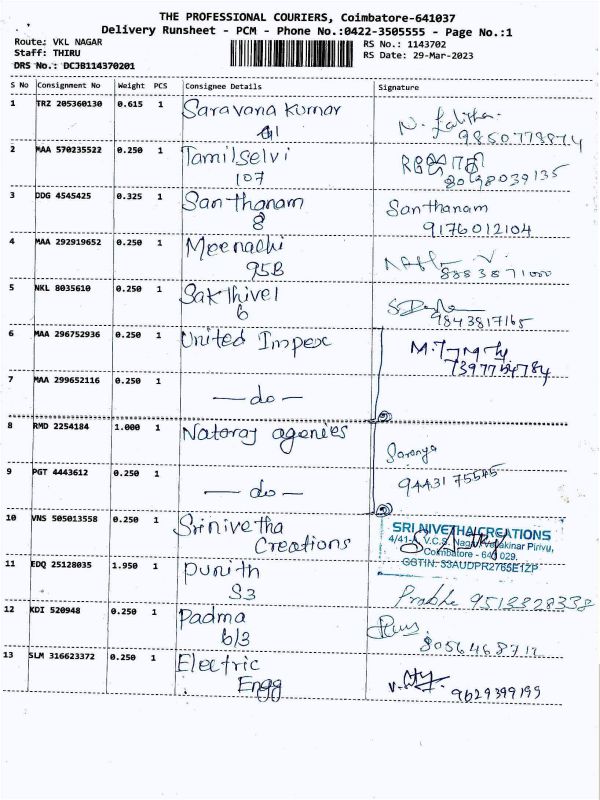 THE PROFESSIONAL COURIERS, Coimbatore-641037
Delivery Runsheet - PCM - Phone No.:0422-3505555 - Page No.:1
Route: VKL NAGAR
RS No.: 1143702
Staff: THIRU
RS Date: 29-Mar-2023
DRS No.: DCJB114370201
S No Consignment No Weight PCS Consignee Details Signature
1 TRZ 205360130 0.615 1 Saravana Kumar
N. Lalitha
91 9850778874
2 MAA 570235522 0.250 1 Tamilselvi
107 8098039135
3 DDG 4545425 0.325 1 Santhanam Santhanam
8 9176012104
4 MAA 292919652 0.250 1 Meenachi
95B 8883871000
5 NKL 8035610 0.250 1 Sakthivel
6 9843817165
6 MAA 296752936 0.250 1 United Impex
7 MAA 299652116 0.250 1 — do —
8 RMD 2254184 1.000 1 Nataraj agenies
Saranya
9 PGT 4443612 0.250 1 — do — 9443175545
10 VNS 505013558 0.250 1 Srinivetha
Creations
SRI NIVETHAA CREATIONS
4/41- V.C.S. Nagar, Vinayakinar Pirivu,
Coimbatore - 641 029.
GSTIN: 33AUDPR2765E1ZP
11 EDQ 25128035 1.950 1 Punith
S3 Prabhu 9513328338
12 KDI 520948 0.250 1 Padma
6/3 8056468711
13 SLM 316623372 0.250 1 Electric
Engg 9629399199